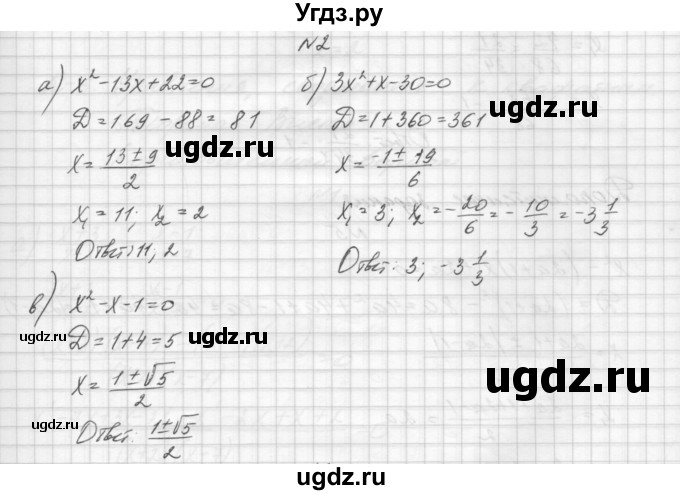 Угдз.ру
№2
а) x² - 13x + 22 = 0
Д = 169 - 88 = 81
x = (13 ± 9)/2
x₁ = 11; x₂ = 2
Ответ: 11, 2
б) 3x² + x - 30 = 0
Д = 1 + 360 = 361
x = (-1 ± 19)/6
x₁ = 3; x₂ = -20/6 = -10/3 = -3 1/3
Ответ: 3; -3 1/3
в) x² - x - 1 = 0
Д = 1 + 4 = 5
x = (1 ± √5)/2
Ответ: (1 ± √5)/2
ugdz.ru
ugdz.ru
ugdz.ru
ugdz.ru
ugdz.ru
ugdz.ru
ugdz.ru
ugdz.ru